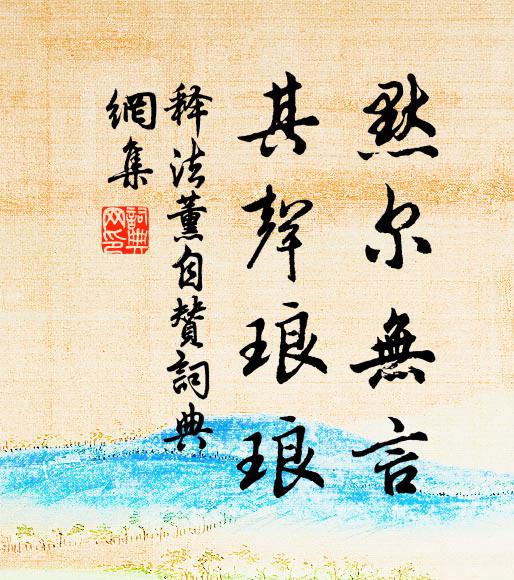 默尔無言
其聲琅琅
释法薰自赞詞典
網集
詞典
网印